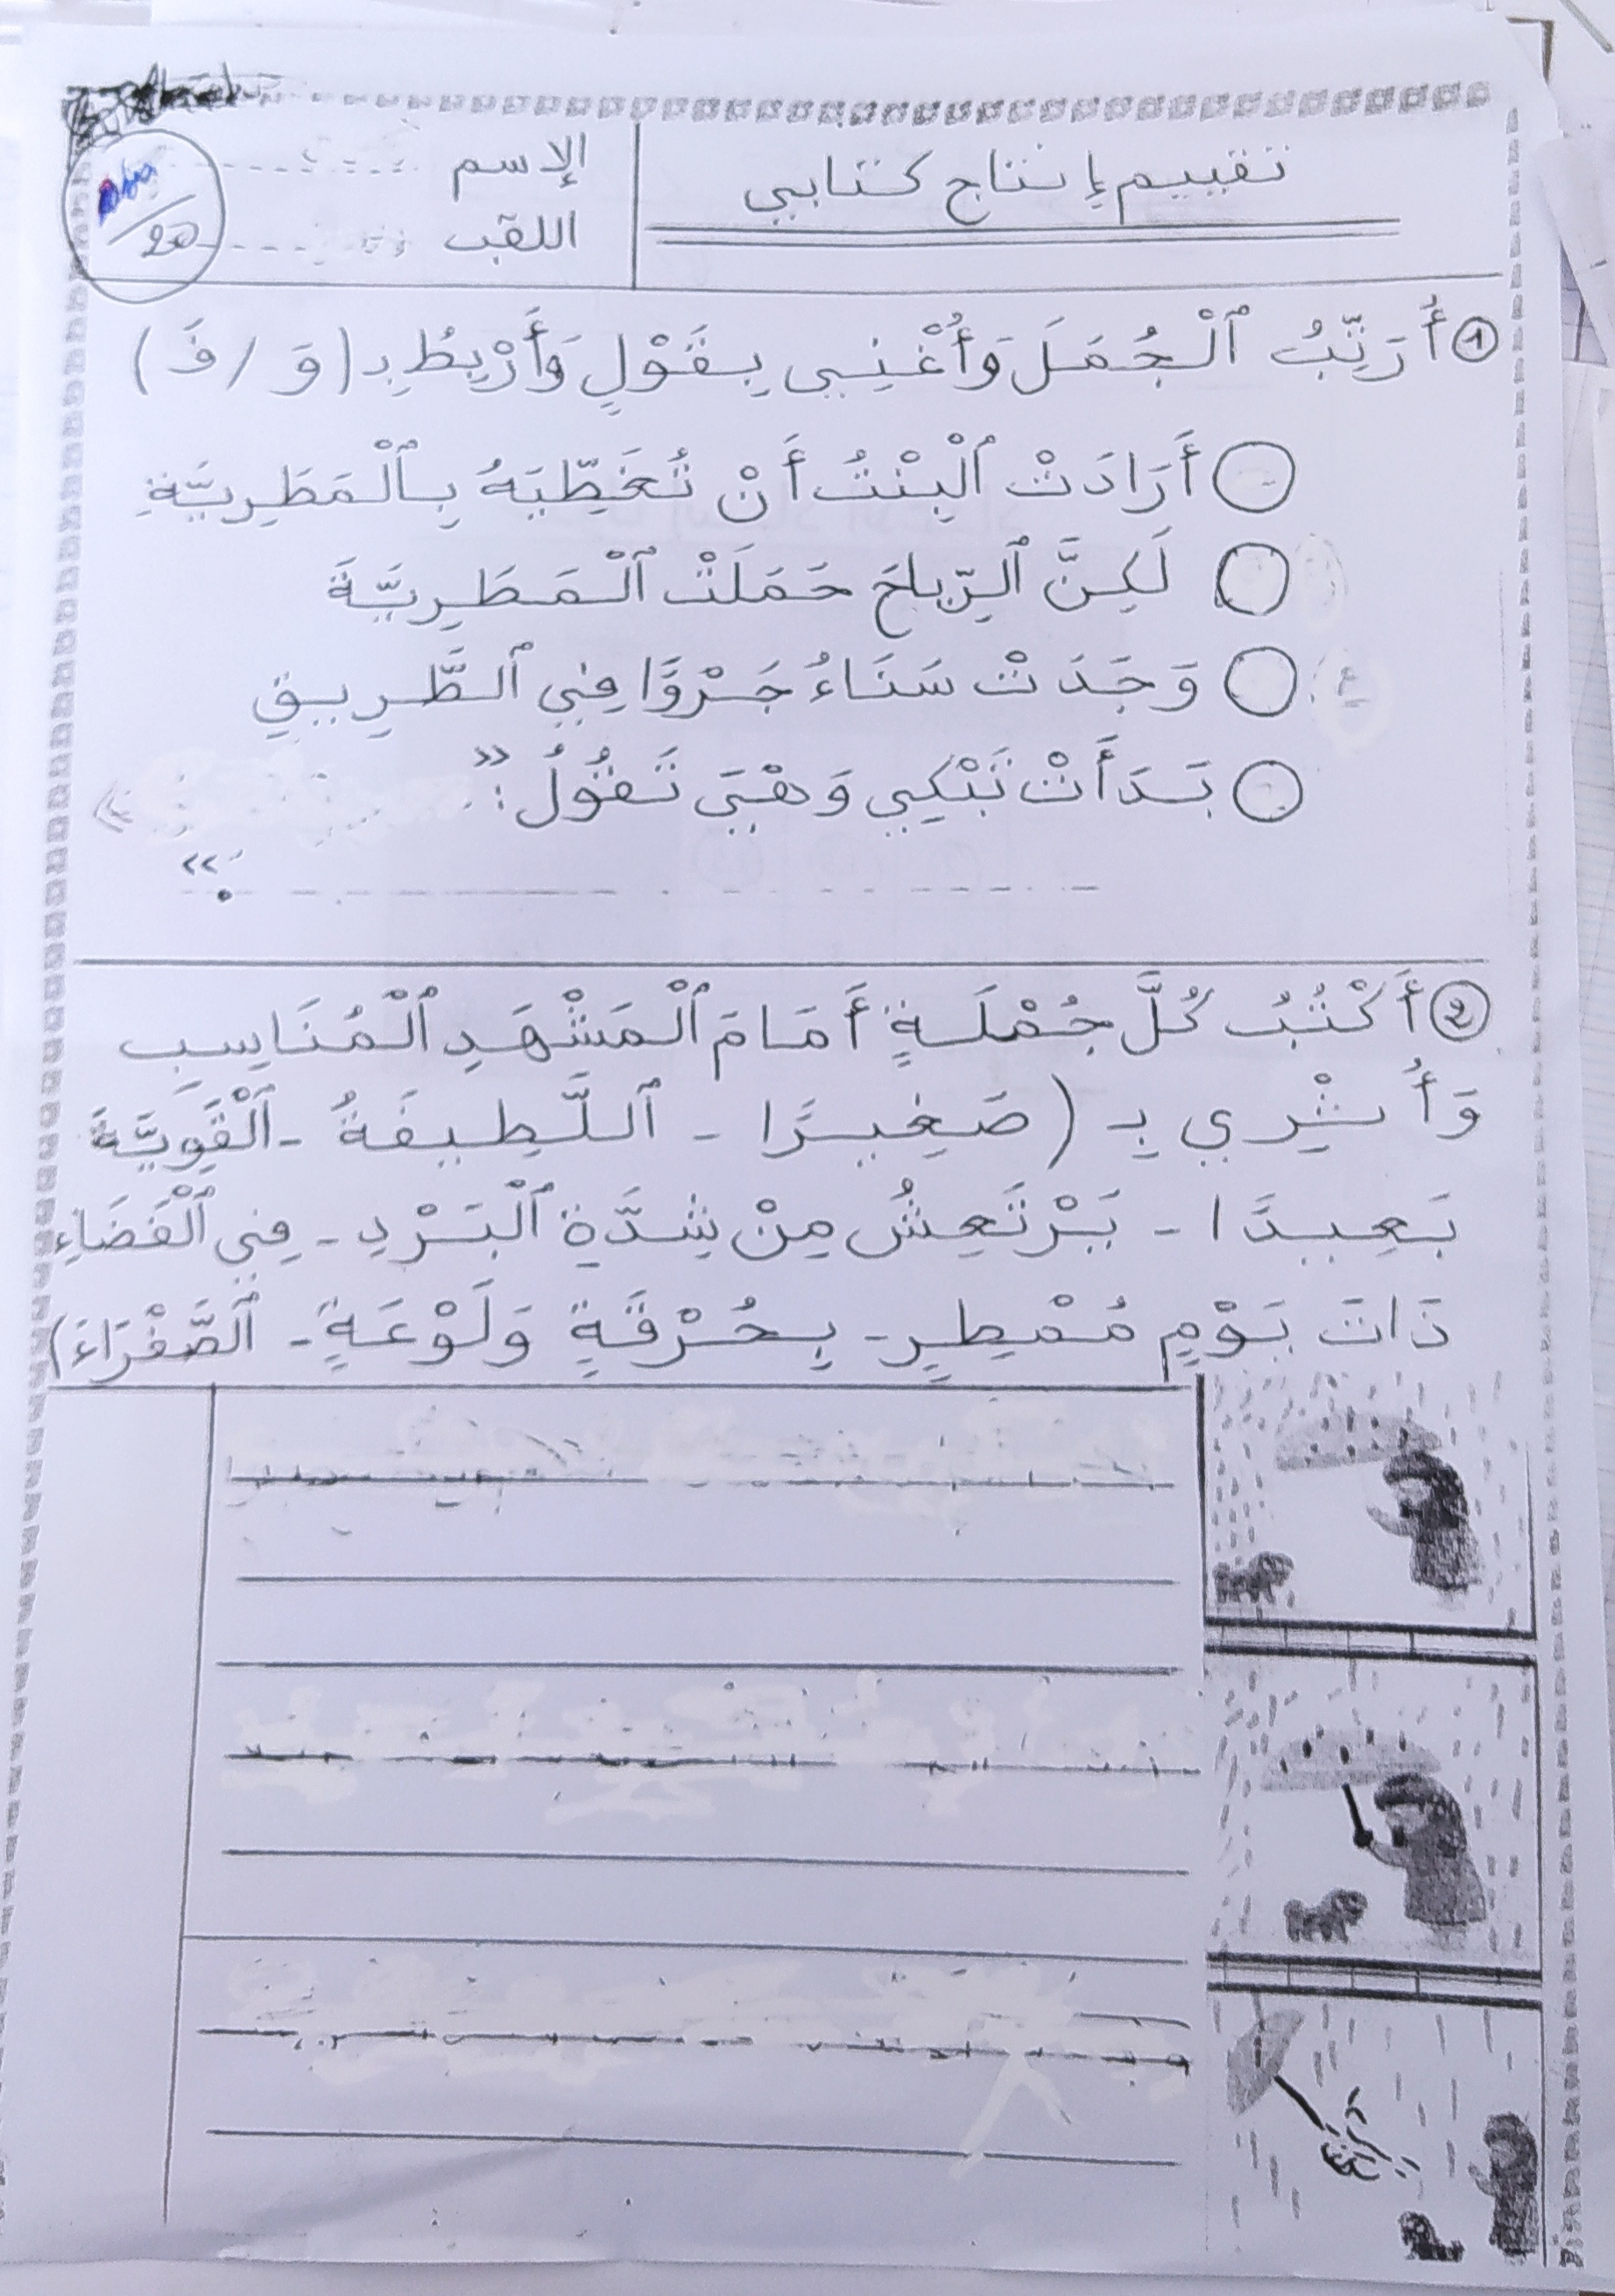 تقييم إنتاج كتابي
الإسم
اللقب
20
1 أُرَتِّبُ ٱلْجُمَلَ وَأُغْنِي بِقَوْلٍ وَأَرْبِطُ بِـ (وَ / فَ)
أَرَادَتْ ٱلْبِنْتُ أَنْ تُغَطِّيَهُ بِٱلْمَطَرِيَّةِ
لَكِنَّ ٱلرِّيَاحَ حَمَلَتْ ٱلْمَطَرِيَّةَ
وَجَدَتْ سَنَاءُ جَرْوًا فِي ٱلطَّرِيقِ
بَدَأَتْ تَبْكِي وَهْيَ تَقُولُ: "
".
2 أَكْتُبُ كُلَّ جُمْلَةٍ أَمَامَ ٱلْمَشْهَدِ ٱلْمُنَاسِبِ
وَأُثْرِي بِـ (صَغِيرًا - ٱللَّطِيفَةُ - ٱلْقَوِيَّةَ
بَعِيدًا - يَرْتَعِشُ مِنْ شِدَّةِ ٱلْبَرْدِ - فِي ٱلْفَضَاءِ
ذَاتَ يَوْمٍ مُمْطِرٍ - بِحُرْقَةٍ وَلَوْعَةٍ - ٱلصَّفْرَاءَ)